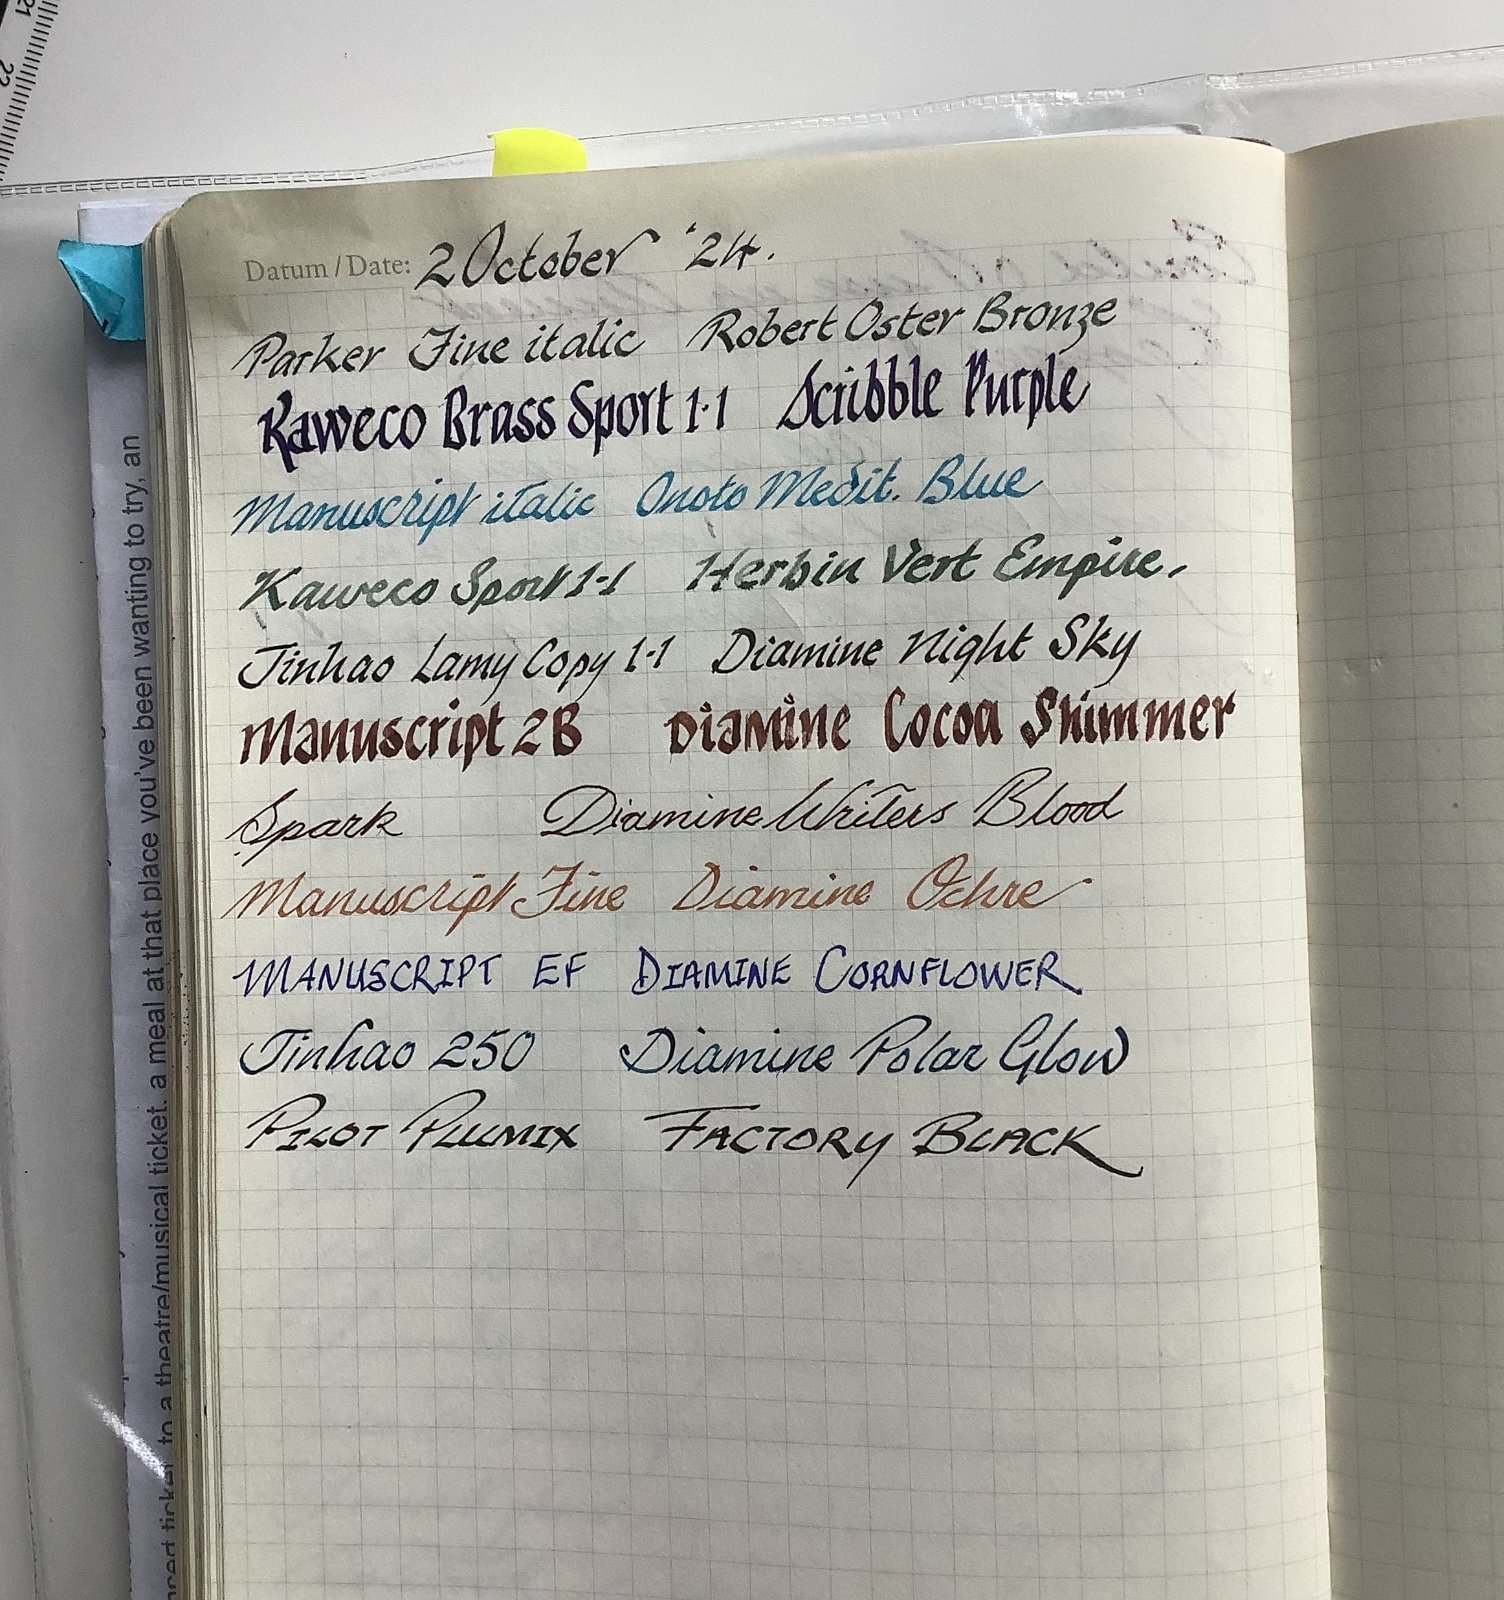 21
22
Datum / Date: 2 October '24.
Parker Fine italic Robert Oster Bronze
Kaweco Brass Sport 1·1 Scribble Purple
Manuscript italic Onoto Medit. Blue
Kaweco Sport 1-1 Herbin Vert Empire.
Jinhao Lamy Copy 1-1 Diamine Night Sky
Manuscript 2B Diamine Cocoa Shimmer
Spark Diamine Writers Blood
Manuscript Fine Diamine Ochre
MANUSCRIPT EF DIAMINE CORNFLOWER
Jinhao 250 Diamine Polar Glow
PILOT PLUMIX FACTORY BLACK
ticket, to a theatre/musical ticket, a meal at that place you've been wanting to try, an